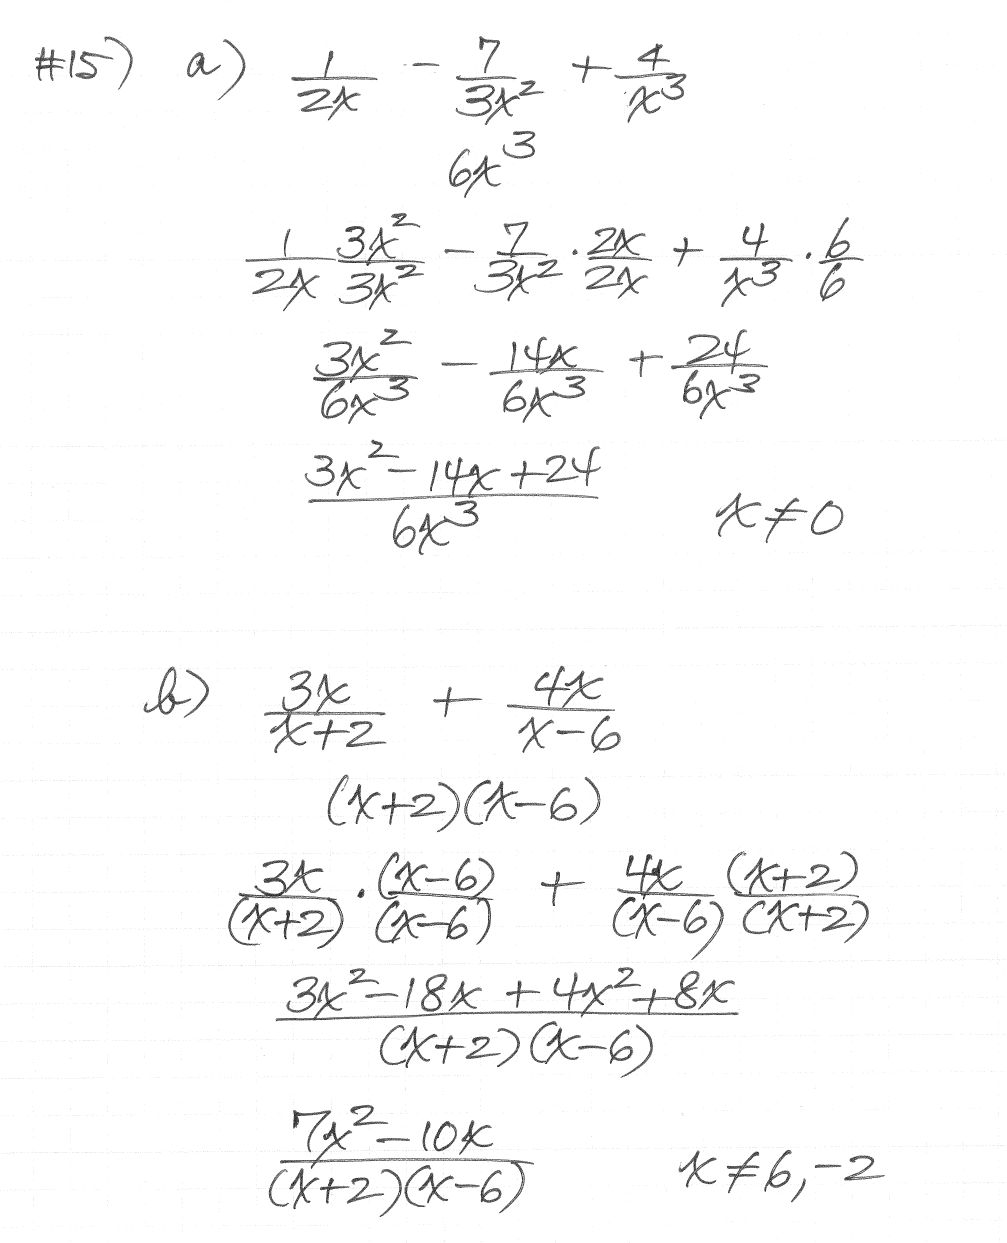 #15) a) 1/2x - 7/3x² + 4/x³
6x³
1/2x 3x²/3x² - 7/3x² · 2x/2x + 4/x³ · 6/6
3x²/6x³ - 14x/6x³ + 24/6x³
(3x² - 14x + 24)/6x³ x ≠ 0
b) 3x/(x+2) + 4x/(x-6)
(x+2)(x-6)
3x/(x+2) · (x-6)/(x-6) + 4x/(x-6) (x+2)/(x+2)
(3x² - 18x + 4x² + 8x)/((x+2)(x-6))
(7x² - 10x)/((x+2)(x-6)) x ≠ 6, -2